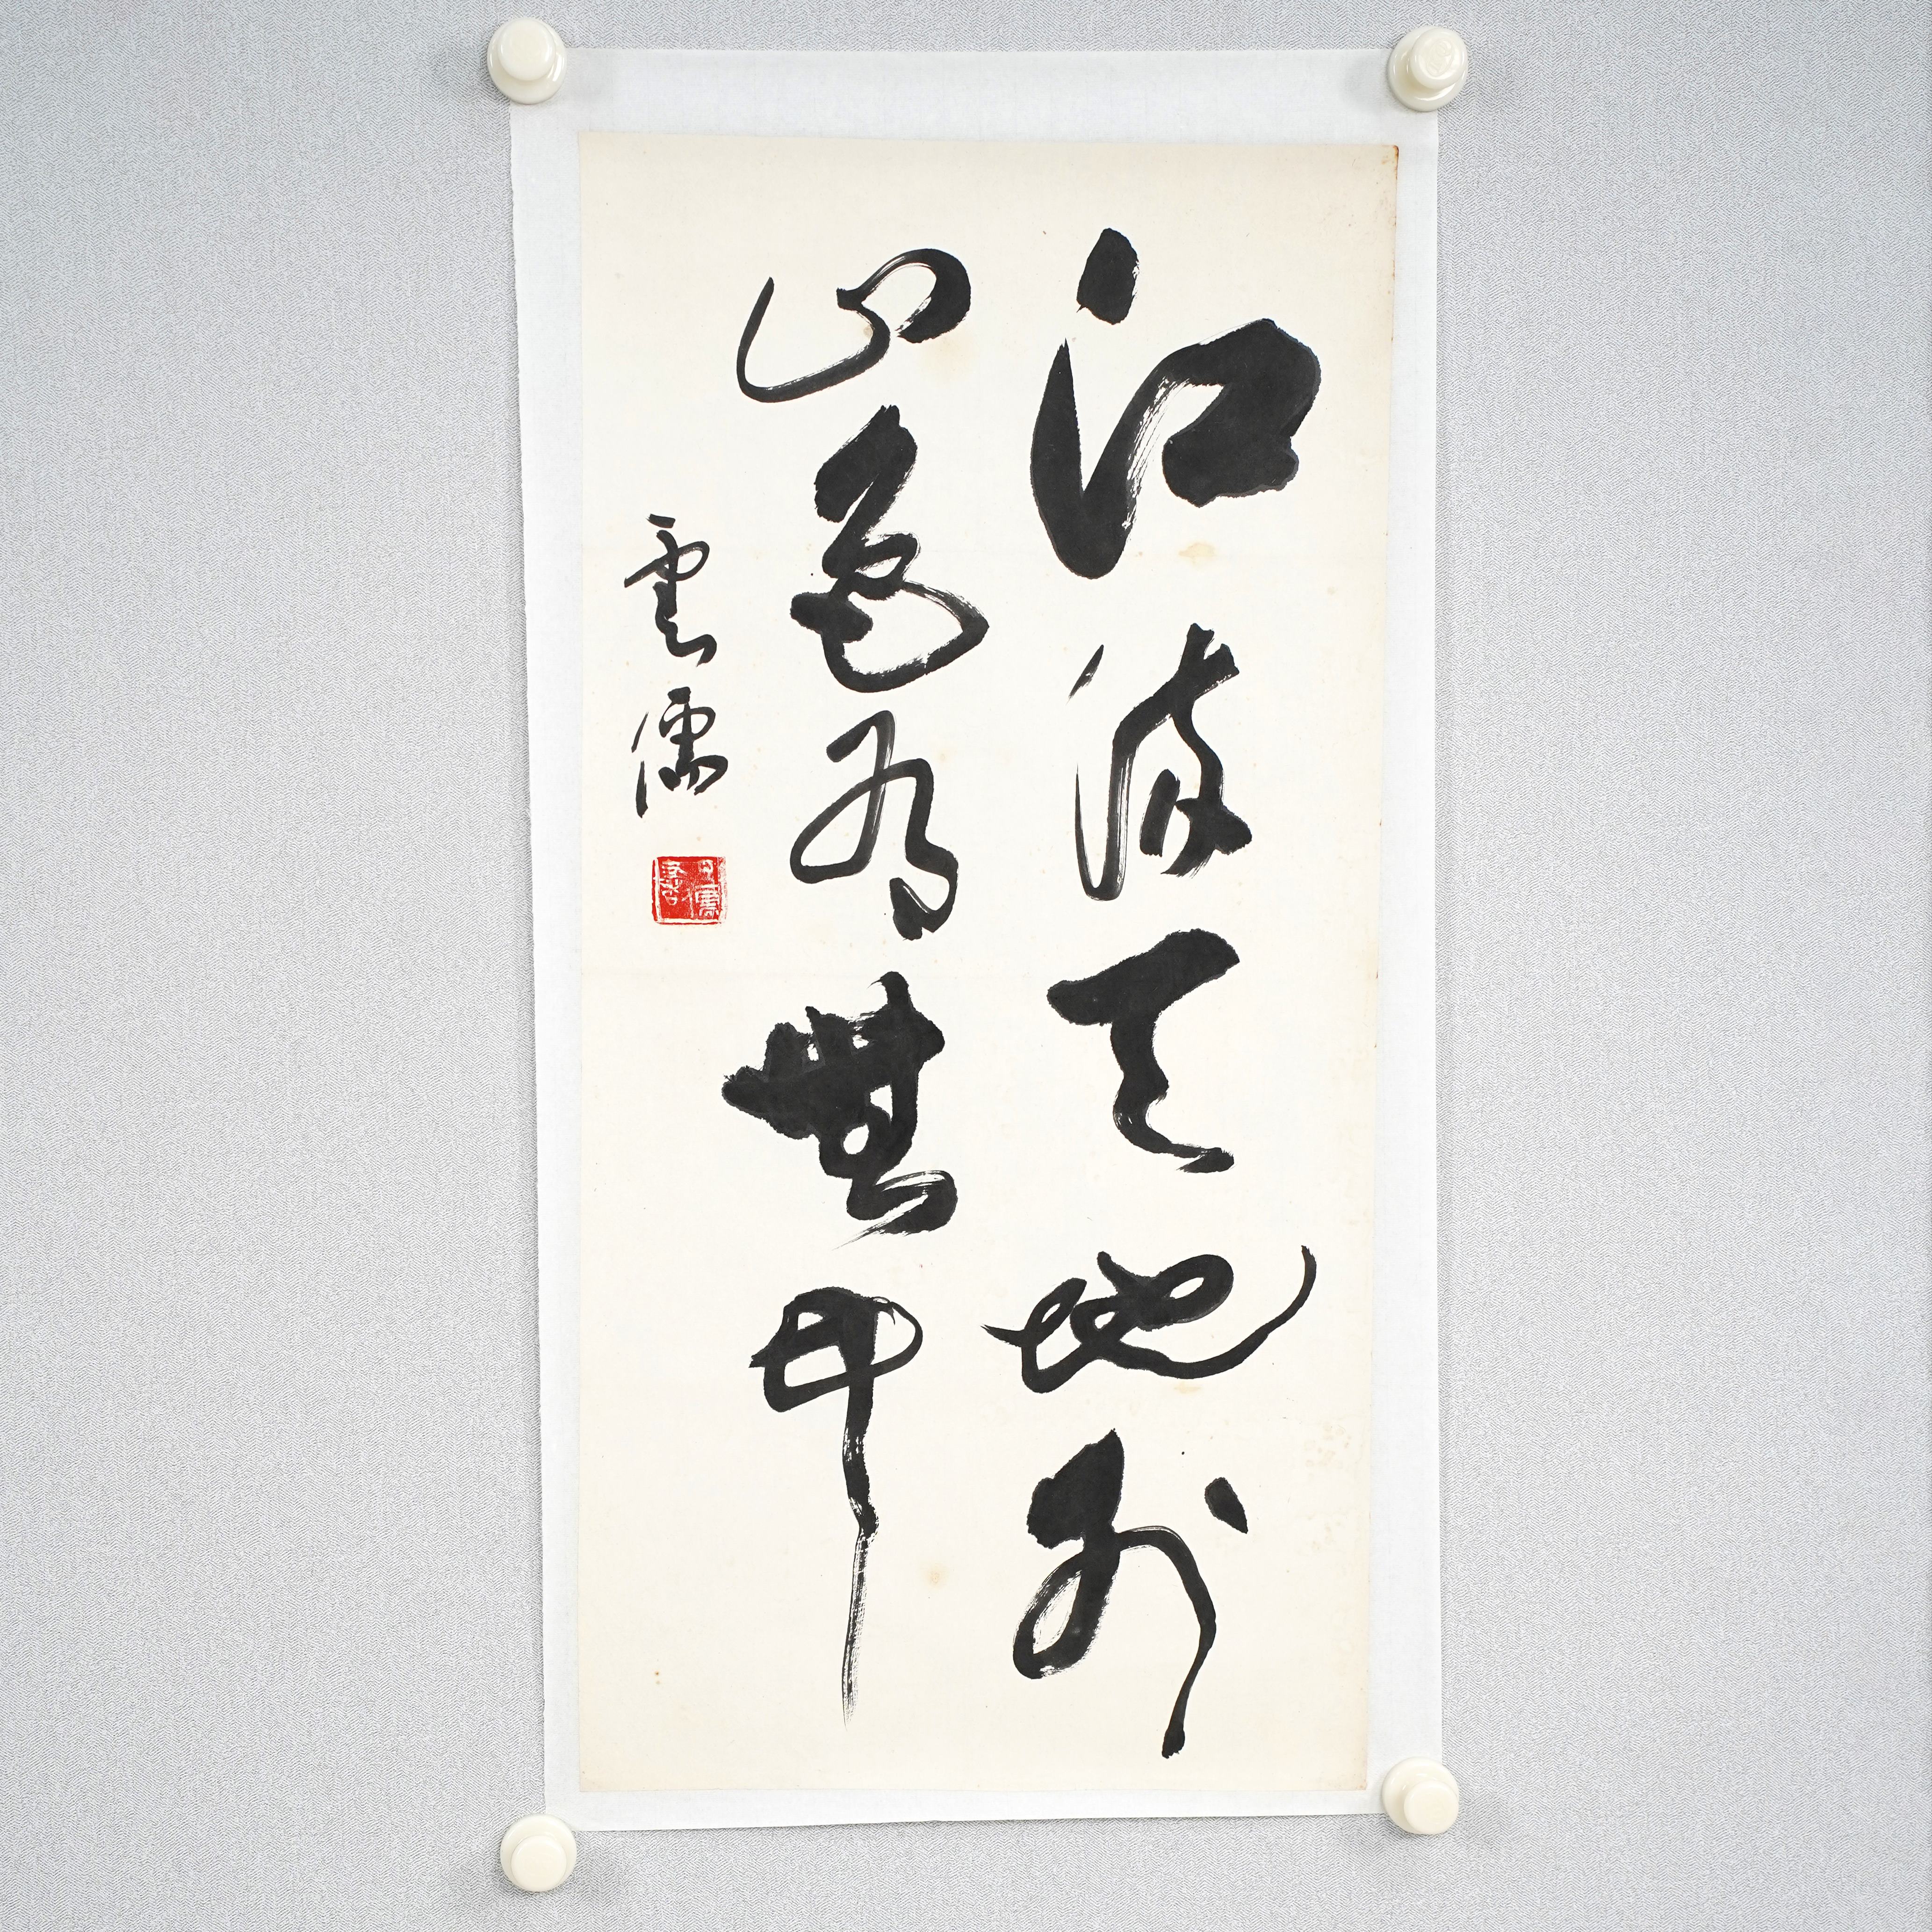 江流天地外
山色有無中
雲儒